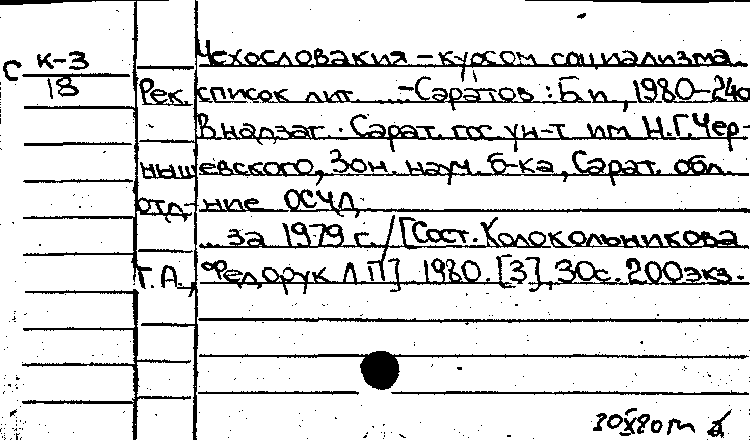 С К-3
18
Чехословакия – курсом социализма.
Рек. список лит. ... – Саратов : Б.и, 1980 – 24о
В надзаг. : Сарат. гос. ун-т им Н.Г.Чер-
нышевского, Зон. науч. б-ка, Сарат. обл.
отд-ние ОСЧД.
... за 1979 г. / [Сост. Колокольникова
Т.А., Федорук Л.П] 1980. [3], 30с. 200экз.